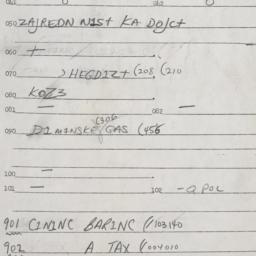 050 ZAJREDN NIST KA DOJCT
060 +
070 ) HEGDIZT (208 (210
080 KOZ3
081 — 082 —
(306
090 DIMINSKE/GAS (456
100 —
101 — 102 -Q POL
901 CININC BARINC (/103140
902 A TAX (/004010